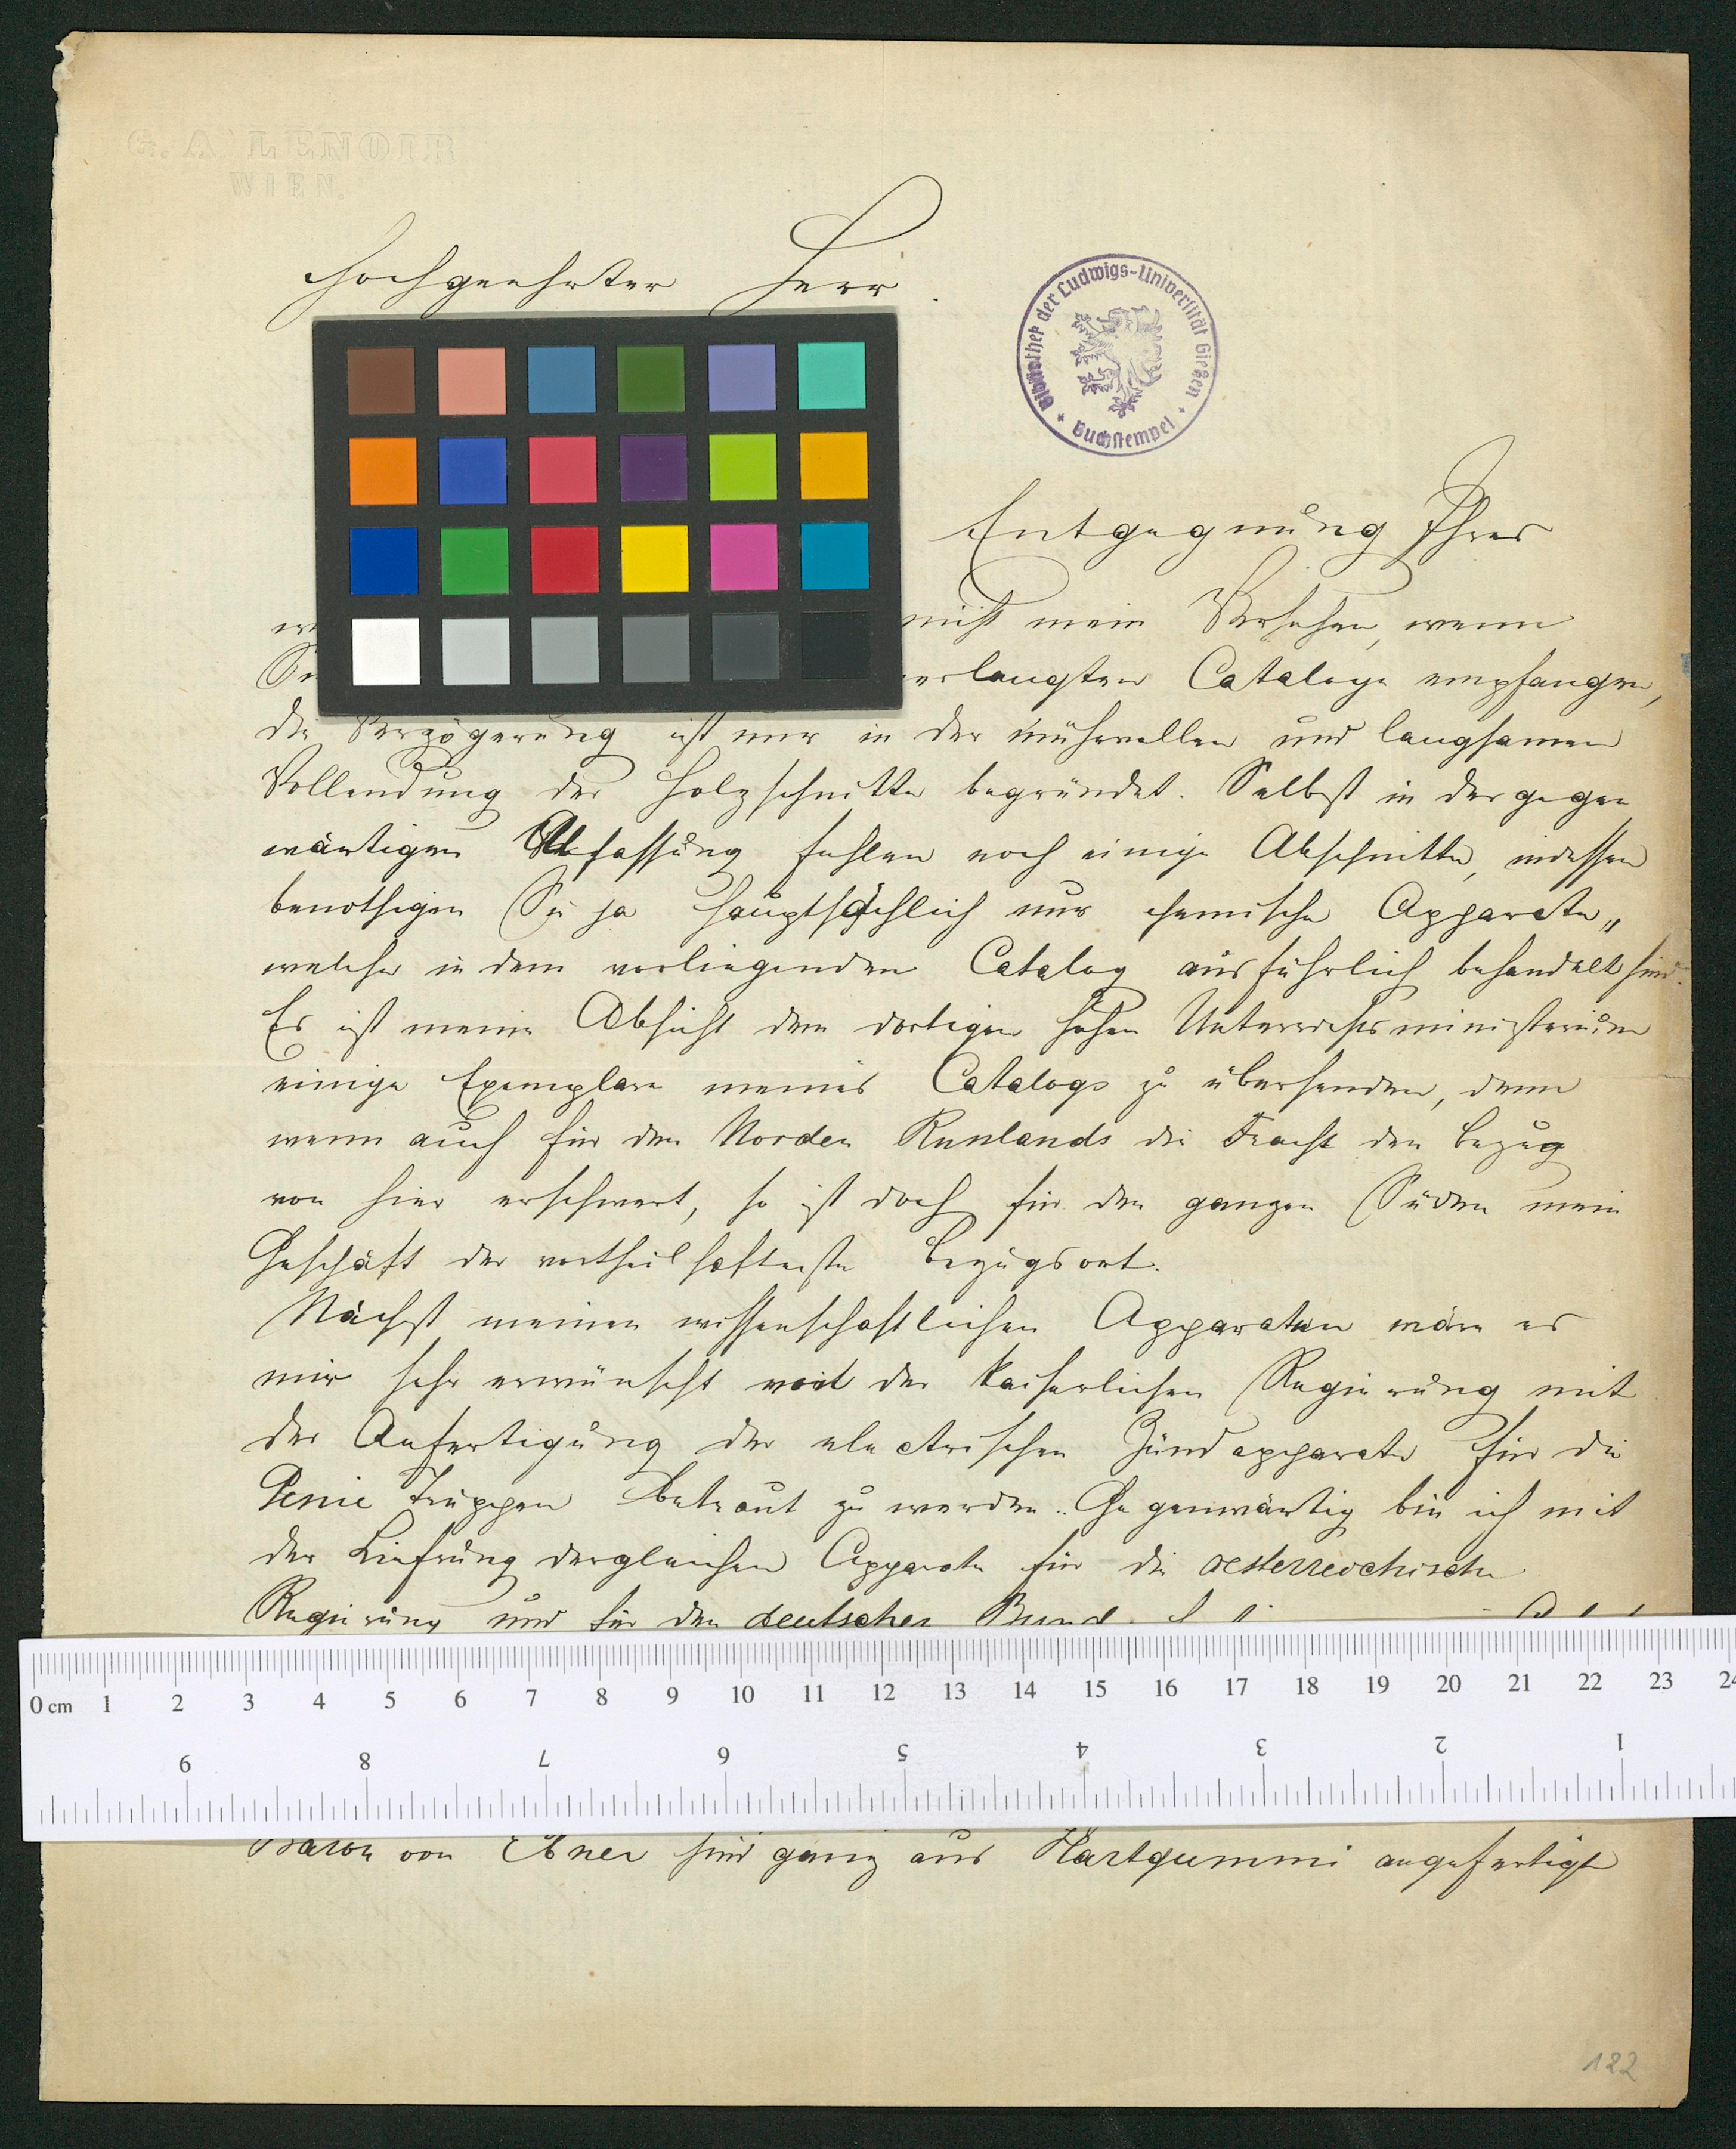 G. A. LENOIR
WIEN.
Hochgeehrter Herr
Bibliothek der Ludwigs-Universität Gießen
Buchstempel
Entgegnung Ihres
nicht mein Versehen, wenn
verlangten Cataloge empfangen,
die Verzögerung ist nur in der mühevollen und langsamen
Vollendung der Holzschnitte begründet. Selbst in der gegen
wärtigen Abfassung fehlen noch einige Abschnitte, indessen
benothigen Sie ja hauptsächlich nur chemische Apparate,
welche in dem vorliegenden Catalog ausführlich behandelt sind.
Es ist meine Absicht dem dortigen hohen Unterrichtsministerium
einige Exemplare meines Catalogs zu übersenden, denn
wenn auch für den Norden Russlands die Fracht den Bezug
von hier erschwert, so ist doch für den ganzen Süden mein
Geschäft der vortheilhafteste Bezugsort.
Nächst meinen wissenschaftlichen Apparaten wäre es
mir sehr erwünscht von der Kaiserlichen Regierung mit
der Anfertigung der electrischen Zündapparate für die
Genie Truppen betraut zu werden. Gegenwärtig bin ich mit
der Liefrung dergleichen Apparate für die oesterreichische
Regierung und für den deutschen Bund
0 cm 1 2 3 4 5 6 7 8 9 10 11 12 13 14 15 16 17 18 19 20 21 22 23 24
9 8 7 6 5 4 3 2 1
Baron von Ebner sind ganz aus Hartgummi angefertigt
122